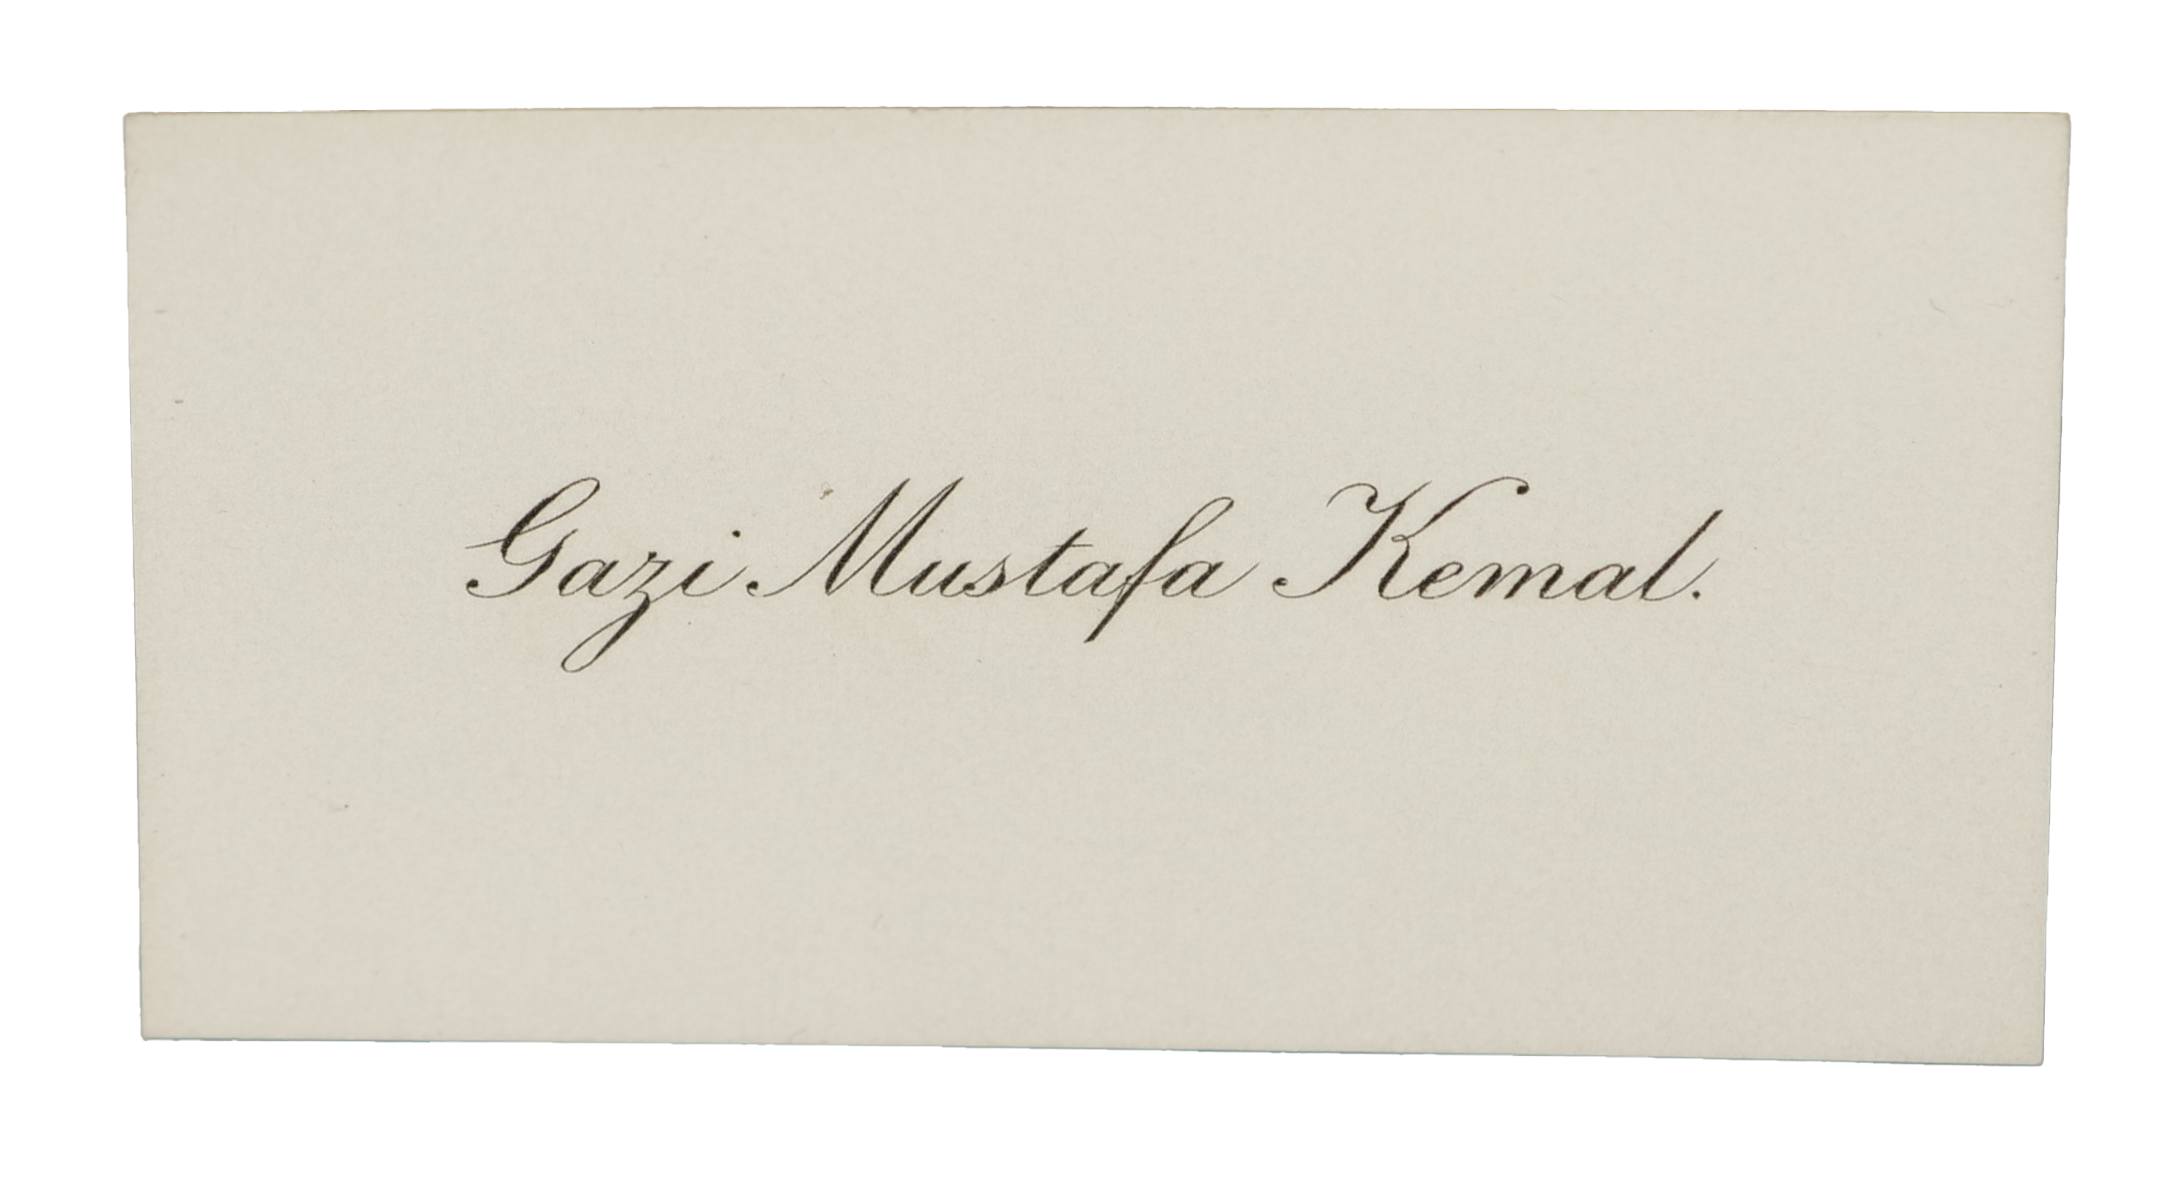 Gazi Mustafa Kemal.